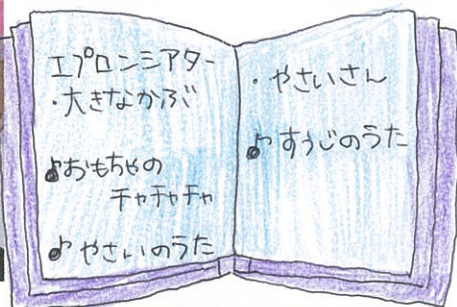 エプロンシアター
・大きなかぶ
♪おもちゃの
チャチャチャ
♪やさいのうた
・やさいさん
♪すうじのうた